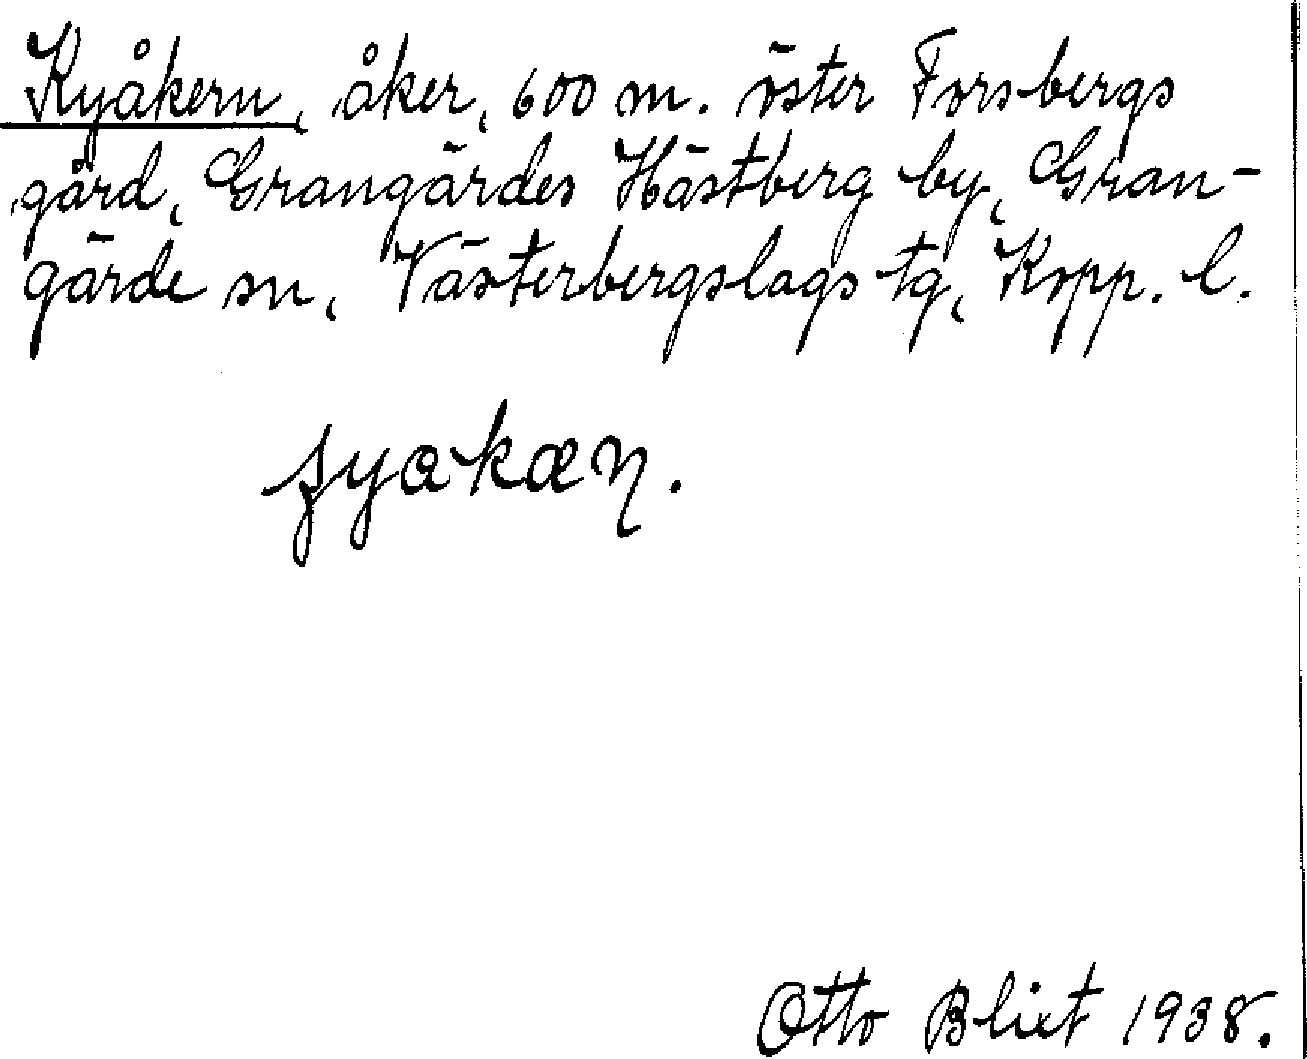 Kyåkern, åker, 600 m. öster Forsbergs
gård, Grangärdes Hästberg by, Gran-
gärde sn, Västerbergslags tg, Kopp. l.
Otto Blixt 1938.